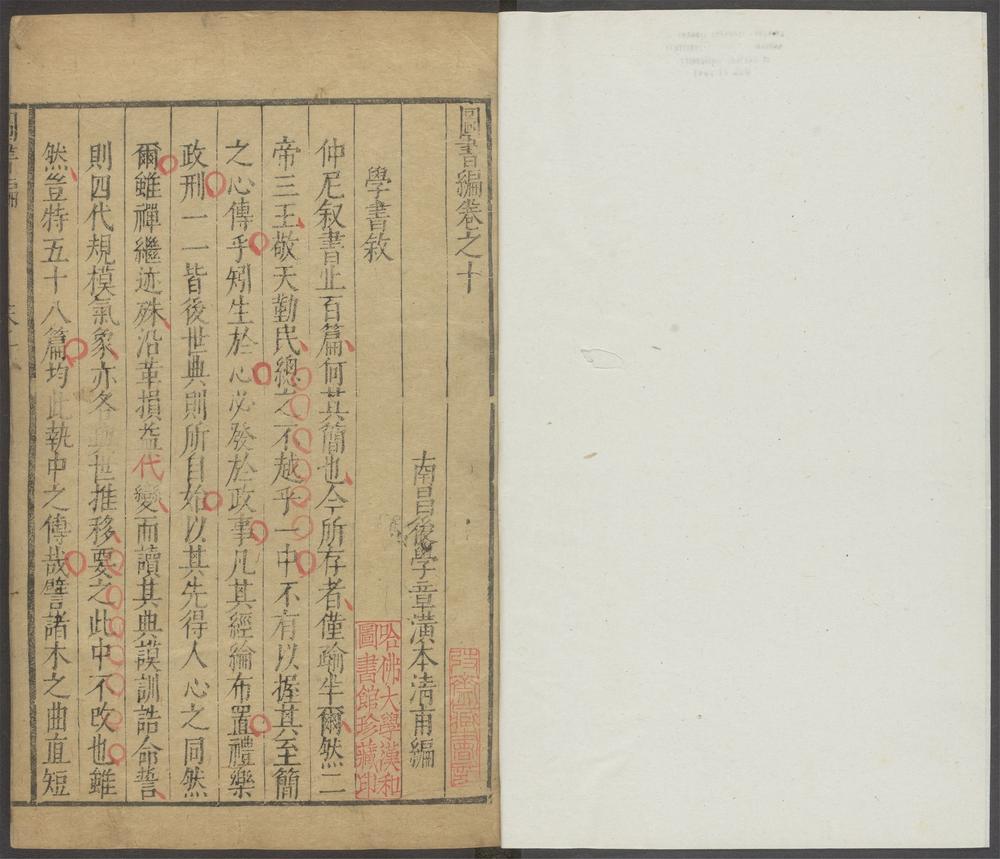 圖書編卷之十
南昌後學章潢本清甫編
學書敘
仲尼叙書止百篇何其簡也今所存者僅踰半爾然二
帝三王敬天勤民總之不越乎一中不有以握其至簡
之心傳乎矧生於心必發於政事凡其經綸布置禮樂
政刑一一皆後世典則所自始以其先得人心之同然
爾雖禪繼迹殊沿革損益代變而讀其典謨訓誥命誓
則四代規模氣象亦各與世推移要之此中不改也雖
然豈特五十八篇均此執中之傳哉譬諸木之曲直短
哈佛大學漢和
圖書館珍藏印